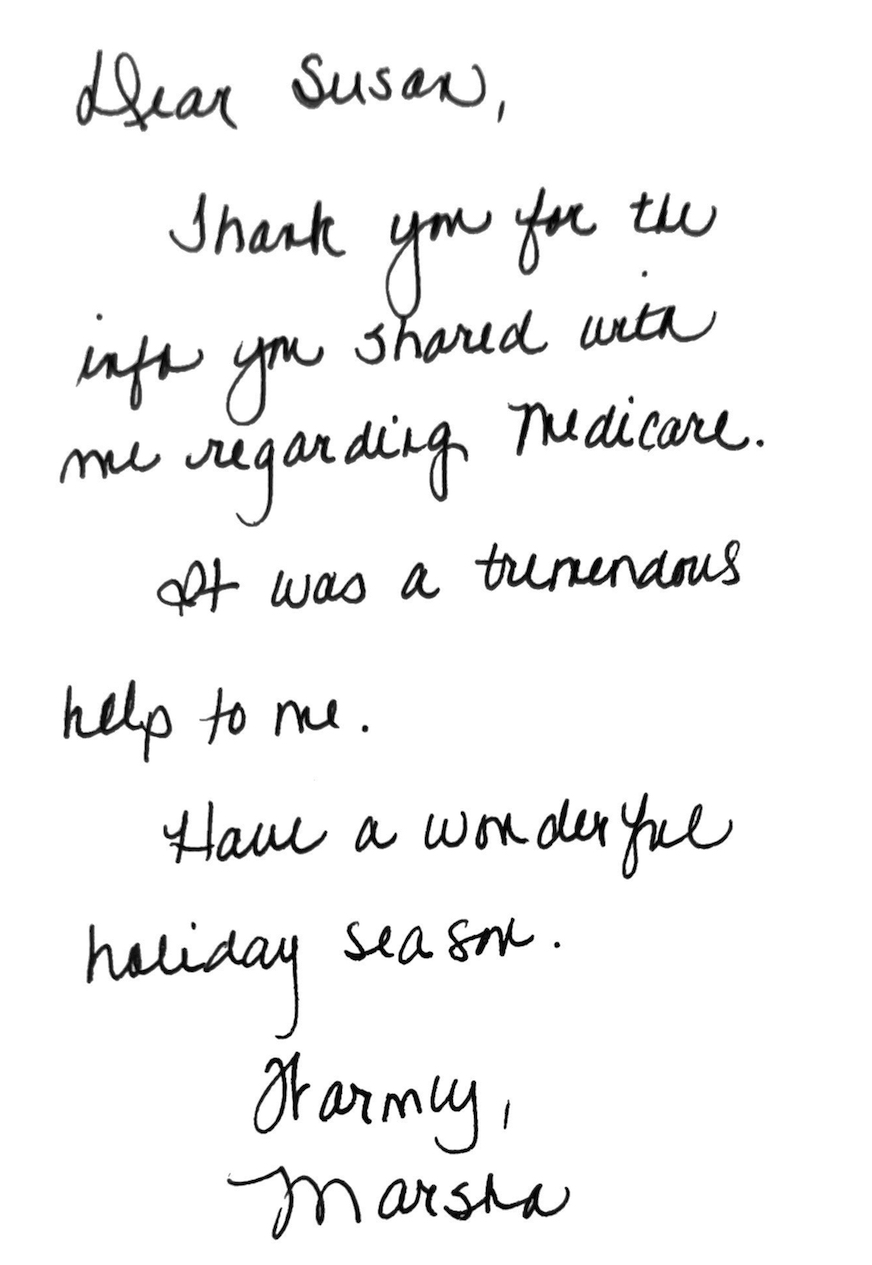 Dear Susan,
Thank you for the
info you shared with
me regarding Medicare.
It was a tremendous
help to me.
Have a wonderful
holiday season.
Warmly,
Marsha